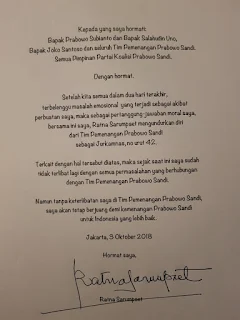 Kepada yang saya hormati:
Bapak Prabowo Subianto dan Bapak Salahudin Uno,
Bapak Joko Santoso dan seluruh Tim Pemenangan Prabowo Sandi.
Semua Pimpinan Partai Koalisi Prabowo Sandi.
Dengan hormat,
Setelah kita semua dalam dua hari terakhir,
terbelenggu masalah emosional yang terjadi sebagai akibat
perbuatan saya, maka sebagai pertanggung-jawaban moral saya,
bersama ini saya, Ratna Sarumpaet mengundurkan diri
dari Tim Pemenangan Prabowo Sandi
sebagai Jurkamnas, no urut 42.
Terkait dengan hal tersebut diatas, maka sejak saat ini saya sudah
tidak terlibat lagi dengan semua permasalahan yang berhubungan
dengan Tim Pemenangan Prabowo Sandi.
Namun tanpa keterlibatan saya di Tim Pemenangan Prabowo Sandi,
saya akan tetap berjuang demi kemenangan Prabowo Sandi
untuk Indonesia yang lebih baik.
Jakarta, 3 Oktober 2018
Hormat saya,
Ratna Sarumpaet
Ratna Sarumpaet